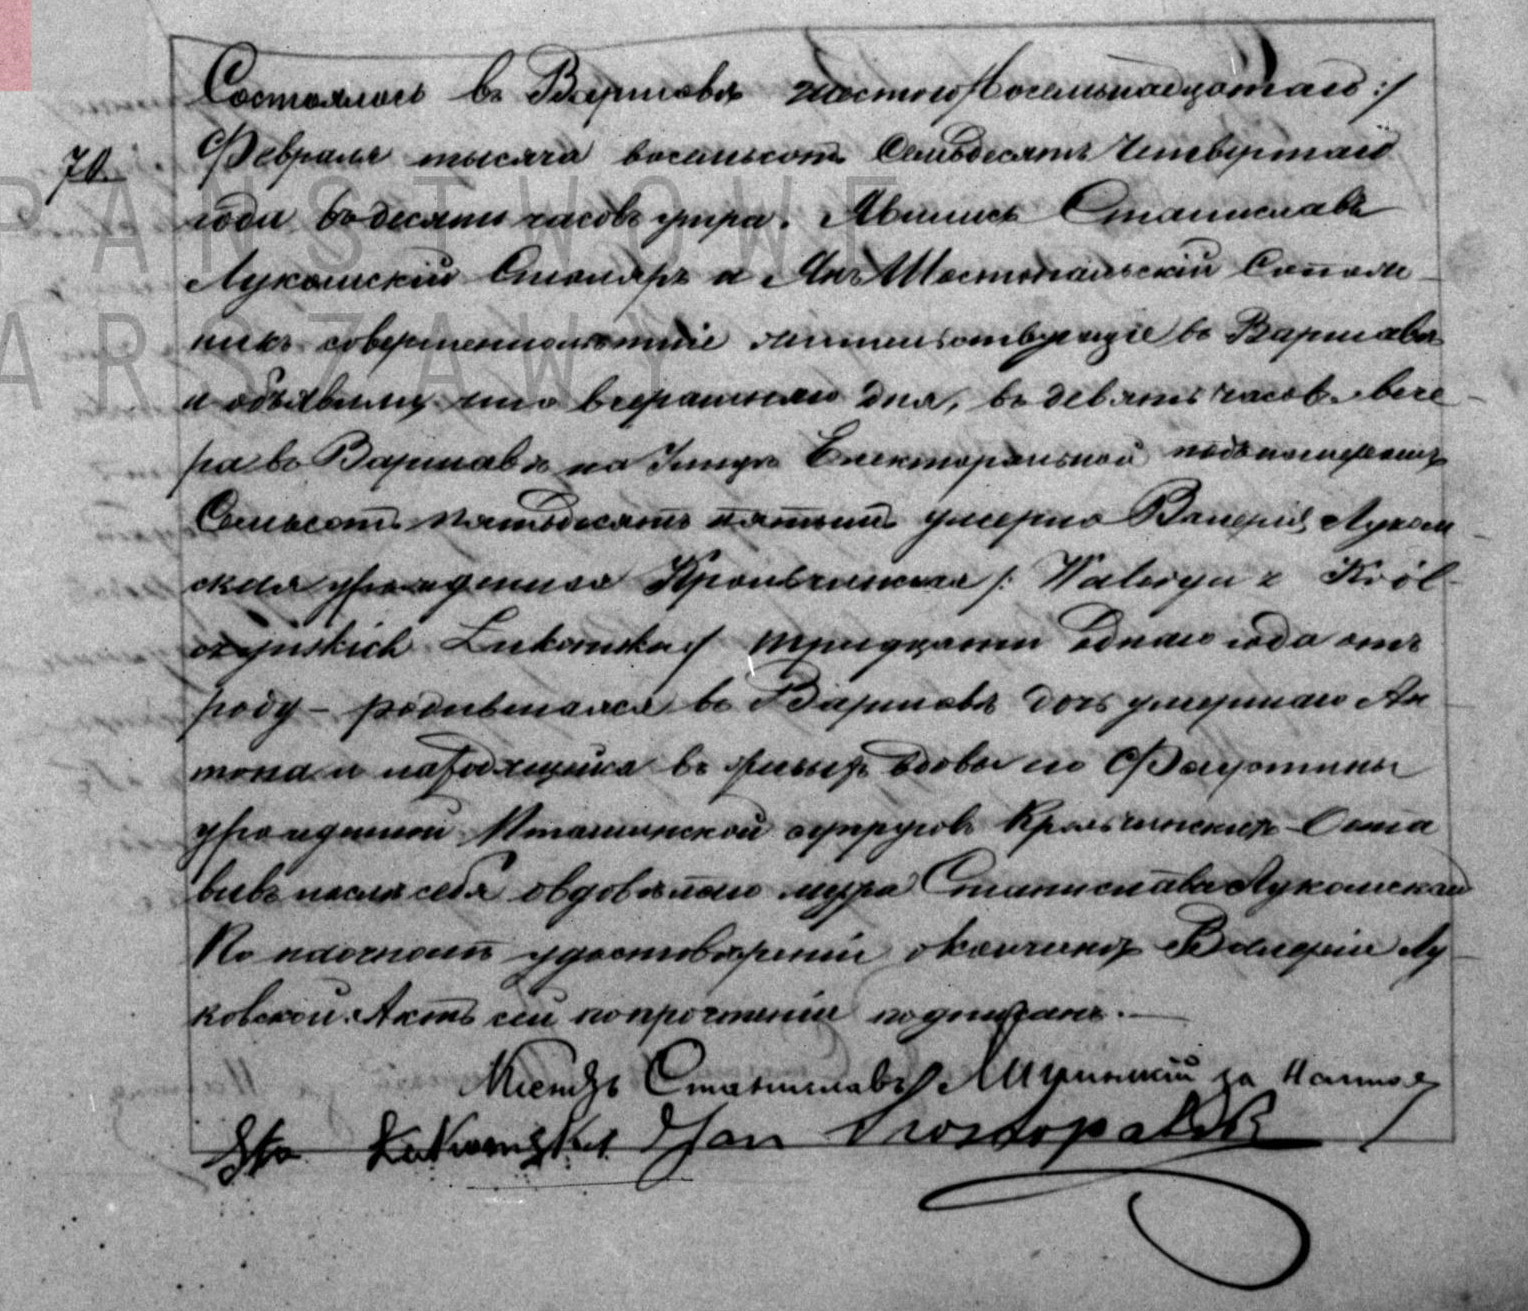 70.
Состоялось въ Варшавѣ шестого /восемьнадцатаго:/
Февраля тысяча восемьсотъ Семьдесятъ Четвертаго
года въ десять часовъ утра. Явились Станиславъ
Лукомскій Столяръ и Янъ
никъ совершеннолѣтніе жительствующіе въ Варшавѣ
и объявили, что вчерашняго дня, въ девять часовъ вече-
ра въ Варшавѣ на Улицѣ Електоральной подъ номеромъ
Семьсотъ пятьдесятъ пятымъ умерла Валерія Луком-
ская урожденная Крольчинская /: Waleryа z Król-
czyńskich Łukomska:/ тридцати одного года отъ
роду – родившаяся въ Варшавѣ дочь умершаго Ан-
тона и находящейся въ живыхъ вдовы его Фаустины
урожденной супруговъ Крольчинскихъ Оста
вивъ послѣ себя овдовѣлаго мужа Станислава Лукомскаго
По наочномъ удостовѣреніи о кончинѣ Валеріи Лу-
ковской. Актъ сей по прочтеніи подписанъ.—
Ксендзъ Станиславъ за Настоя
Sta Łukomski Jan